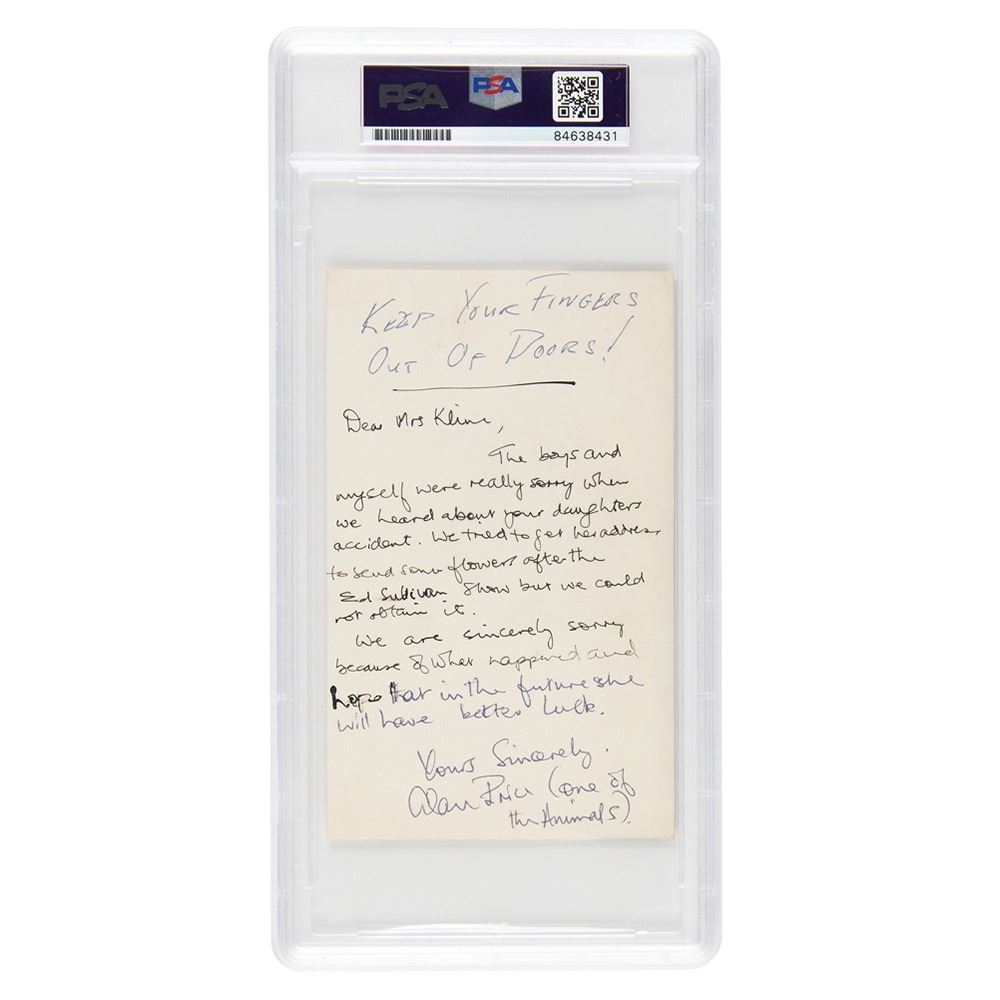 PSA
PSA
84638431
KEEP YOUR FINGERS
OUT OF DOORS!
Dear Mrs Kline,
The boys and
myself were really sorry when
we heard about your daughters
accident. We tried to get her address
to send some flowers after the
Ed Sullivan Show but we could
not obtain it.
We are sincerely sorry
because of what happened and
hope that in the future she
will have better luck.
Yours Sincerely.
Alan Price (one of
the Animals).